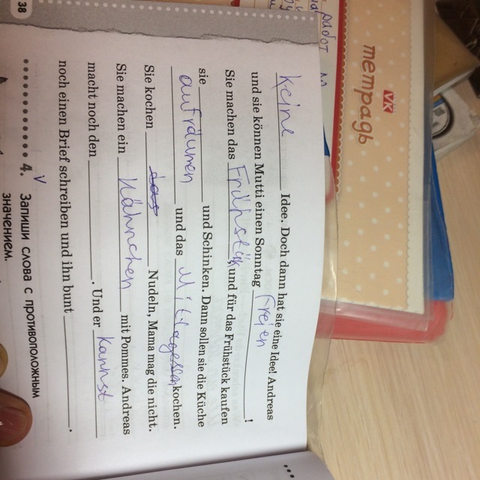 38
keine Idee. Doch dann hat sie eine Idee! Andreas
und sie können Mutti einen Sonntag freien !
Sie machen das Frühstük, und für das Frühstück kaufen
sie ________ und Schinken. Dann sollen sie die Küche
aufräumen und das Mittagessen kochen.
Sie kochen ________ Nudeln, Mama mag die nicht.
Sie machen ein Hähnchen mit Pommes. Andreas
macht noch den ________. Und er kannst
noch einen Brief schreiben und ihn bunt ________.
4. Запиши слова с противоположным
значением.
VK
тетрадь